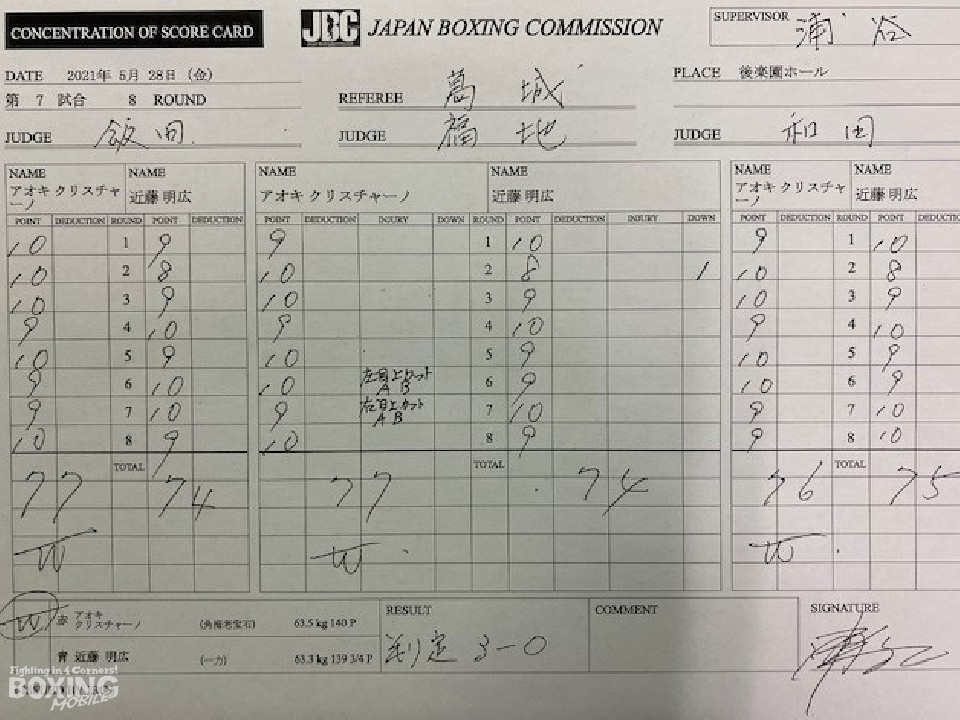 CONCENTRATION OF SCORE CARD
JBC JAPAN BOXING COMMISSION
SUPERVISOR 浦谷
DATE 2021年 5月 28日 (金)
PLACE 後楽園ホール
第 7 試合 8 ROUND
REFEREE 葛城
JUDGE 飯田
JUDGE 福地
JUDGE 和田
NAME NAME NAME NAME NAME NAME
アオキ クリスチャーノ 近藤 明広 アオキ クリスチャーノ 近藤 明広 アオキ クリスチャーノ 近藤 明広
POINT DEDUCTION ROUND POINT DEDUCTION POINT DEDUCTION INJURY DOWN ROUND POINT DEDUCTION INJURY DOWN POINT DEDUCTION ROUND POINT DEDUCTIO
10 1 9 9 1 10 9 1 10
10 2 8 10 2 8 1 10 2 8
10 3 9 10 3 9 10 3 9
9 4 10 9 4 10 9 4 10
10 5 9 10 5 9 10 5 9
9 6 10 10 左目上カット AB 6 9 10 6 9
9 7 10 9 右目上カット AB 7 10 9 7 10
10 8 9 10 8 9 9 8 10
TOTAL TOTAL TOTAL
77 74 77 74 76 75
W W W
W 赤 アオキ クリスチャーノ (角海老宝石) 63.5 kg 140 P
青 近藤 明広 (一力) 63.3 kg 139 3/4 P
RESULT 判定 3-0
COMMENT
SIGNATURE
Fighting in 4 Corners!
BOXING
MOBILE